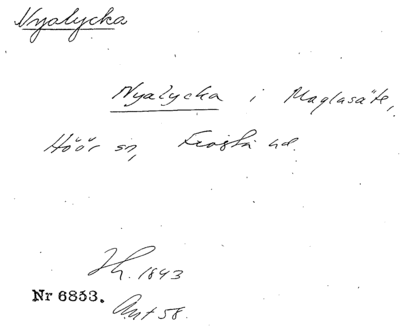 Nyalycka
Nyalycka i Maglasäte,
Höör sn, Frosta hd.
Lh. 1843
Nr 6853.
Ant 58.